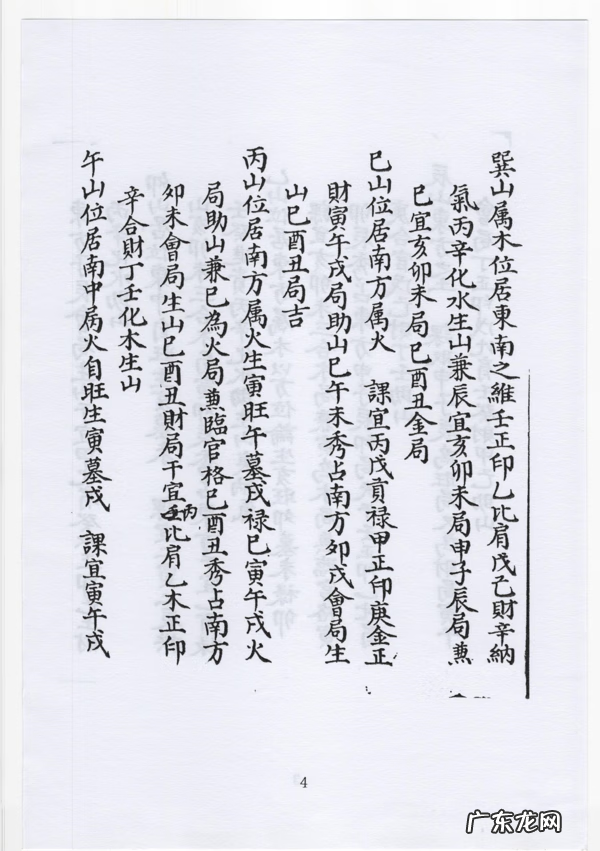 巽山属木位居東南之維壬正印乙比肩戊己財辛納
氣丙辛化水生山兼辰宜亥卯未局申子辰局兼
巳宜亥卯未局巳酉丑金局
巳山位居南方属火 課宜丙戊貢禄甲正印庚金正
財寅午戌局助山巳午未秀占南方卯戌會局生
山巳酉丑局吉
丙山位居南方属火生寅旺午墓戌禄巳寅午戌火
局助山兼巳為火局兼臨官格巳酉丑秀占南方
卯未會局生山巳酉丑財局干宜丙比肩乙木正印
辛合財丁壬化木生山
午山位居南中屬火自旺生寅墓戌 課宜寅午戌
4
广东龙网